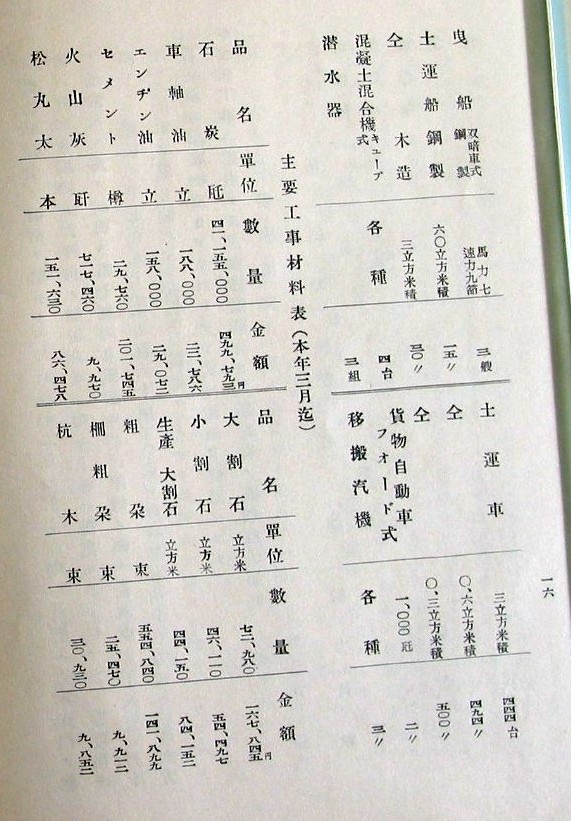 曳船 鋼製 双暗車式 馬力七 速力九節 三艘
土運船 鋼製 六〇立方米積 一五〃
仝 木造 三立方米積 三〇〃
混凝土混合機 キューブ式 各種 四台
潜水器 三組
土運車 三立方米積 四四四台
仝 〇、六立方米積 四九四〃
仝 〇、三立方米積 五〇〇〃
貨物自動車 フォード式 一、〇〇〇瓩 二〃
移搬汽機 各種 三〃
主要工事材料表(本年三月迄)
品名 單位 數量 金額
石炭 瓲 四一、一五五、〇〇〇 四九九、七九三円
車軸油 立 一八八、〇〇〇 二二、七八六
エンヂン油 立 一五八、〇〇〇 二九、〇七二
セメント 樽 二九、七六〇 二〇一、七四五
火山灰 瓩 七二七、四六〇 九、九七〇
松丸太 本 一五一、六三〇 八六、四七八
品名 單位 數量 金額
大割石 立方米 七二、九八〇 一六七、八四五円
小割石 立方米 四六、一一〇 五四、四九七
生産大割石 立方米 四四、一五〇 八四、一五二
粗朶 束 五五四、八四〇 一四一、八九九
柵粗朶 束 二五、四七〇 九、九一二
杭木 束 三〇、九三〇 九、八五二
一六